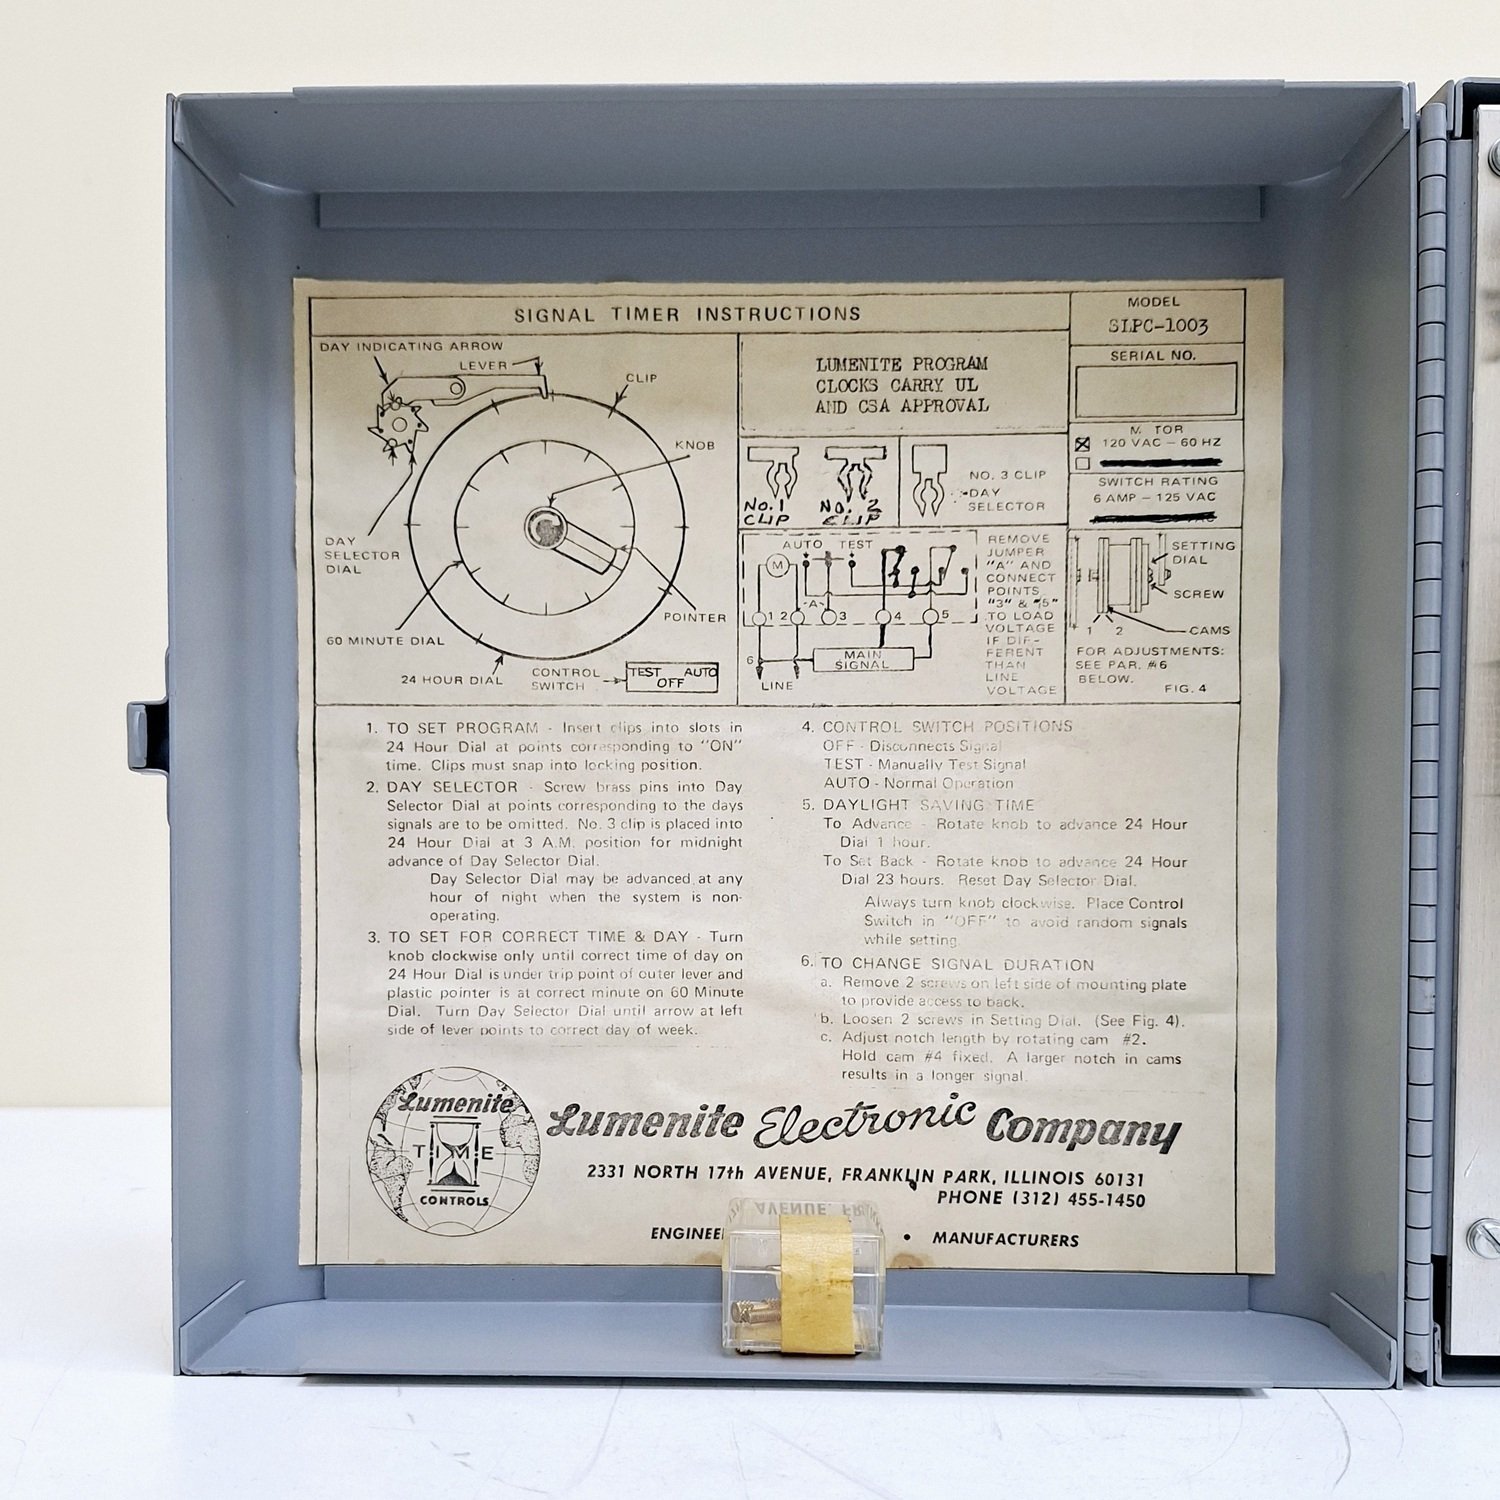 SIGNAL TIMER INSTRUCTIONS
MODEL
SLPC-1003
SERIAL NO.
M TOR
120 VAC – 60 HZ
SWITCH RATING
6 AMP – 125 VAC
DAY INDICATING ARROW
LEVER
CLIP
KNOB
DAY
SELECTOR
DIAL
POINTER
60 MINUTE DIAL
24 HOUR DIAL
CONTROL
SWITCH
TEST AUTO
OFF
LUMENITE PROGRAM
CLOCKS CARRY UL
AND CSA APPROVAL
NO.1
CLIP
NO. 2
CLIP
NO. 3 CLIP
DAY
SELECTOR
AUTO TEST
M
-A-
1 2 3 4 5
6
MAIN
SIGNAL
LINE
REMOVE
JUMPER
"A" AND
CONNECT
POINTS
"3" & "5"
TO LOAD
VOLTAGE
IF DIF-
FERENT
THAN
LINE
VOLTAGE
SETTING
DIAL
SCREW
1 2
CAMS
FOR ADJUSTMENTS:
SEE PAR. #6
BELOW.
FIG. 4
1. TO SET PROGRAM - Insert clips into slots in
24 Hour Dial at points corresponding to "ON"
time. Clips must snap into locking position.
2. DAY SELECTOR - Screw brass pins into Day
Selector Dial at points corresponding to the days
signals are to be omitted. No. 3 clip is placed into
24 Hour Dial at 3 A.M. position for midnight
advance of Day Selector Dial.
Day Selector Dial may be advanced at any
hour of night when the system is non-
operating.
3. TO SET FOR CORRECT TIME & DAY - Turn
knob clockwise only until correct time of day on
24 Hour Dial is under trip point of outer lever and
plastic pointer is at correct minute on 60 Minute
Dial. Turn Day Selector Dial until arrow at left
side of lever points to correct day of week.
4. CONTROL SWITCH POSITIONS
OFF - Disconnects Signal
TEST - Manually Test Signal
AUTO - Normal Operation
5. DAYLIGHT SAVING TIME
To Advance - Rotate knob to advance 24 Hour
Dial 1 hour.
To Set Back - Rotate knob to advance 24 Hour
Dial 23 hours. Reset Day Selector Dial.
Always turn knob clockwise. Place Control
Switch in "OFF" to avoid random signals
while setting.
6. TO CHANGE SIGNAL DURATION
a. Remove 2 screws on left side of mounting plate
to provide access to back.
b. Loosen 2 screws in Setting Dial. (See Fig. 4).
c. Adjust notch length by rotating cam #2.
Hold cam #4 fixed. A larger notch in cams
results in a longer signal.
Lumenite
TIME
CONTROLS
Lumenite Electronic Company
2331 NORTH 17th AVENUE, FRANKLIN PARK, ILLINOIS 60131
PHONE (312) 455-1450
ENGINEE • MANUFACTURERS